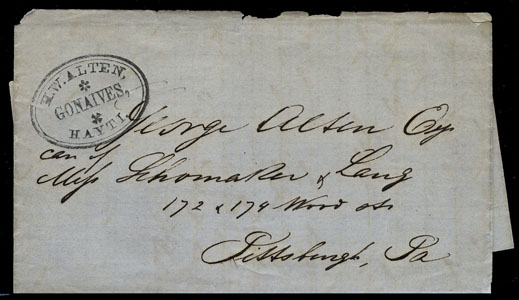 H.W. ALTEN,
GONAIVES,
HAYTI.
George Alten Esq
care of
Mess Schomaker & Lang
172 & 174 Wood str
Pittsburgh, Pa